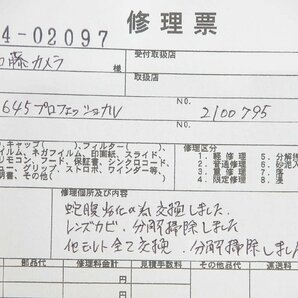 修理票
4-02097
藤カメラ 様
受付取扱店
取扱店
645プロフェッショナル NO. 2100795 NO.
,キャップ( ),フィルター( )
ィルム、ネガフィルム、印画紙、スライド、
リモコン、フード、保証書、シンクロコード、
書、その他( )
修理区分
1. 軽修理 5. 分解
2. 普通修理 6.
3. 重修理 7. 落
4. 限定修理 8.
修理個所及び内容
蛇腹劣化の為交換しました。
レンズカビ、分解掃除しました
他モルト全て交換、分解掃除しました
部品代 修理料金計 見積手数料 その他品代 運送料
円 円 円 円